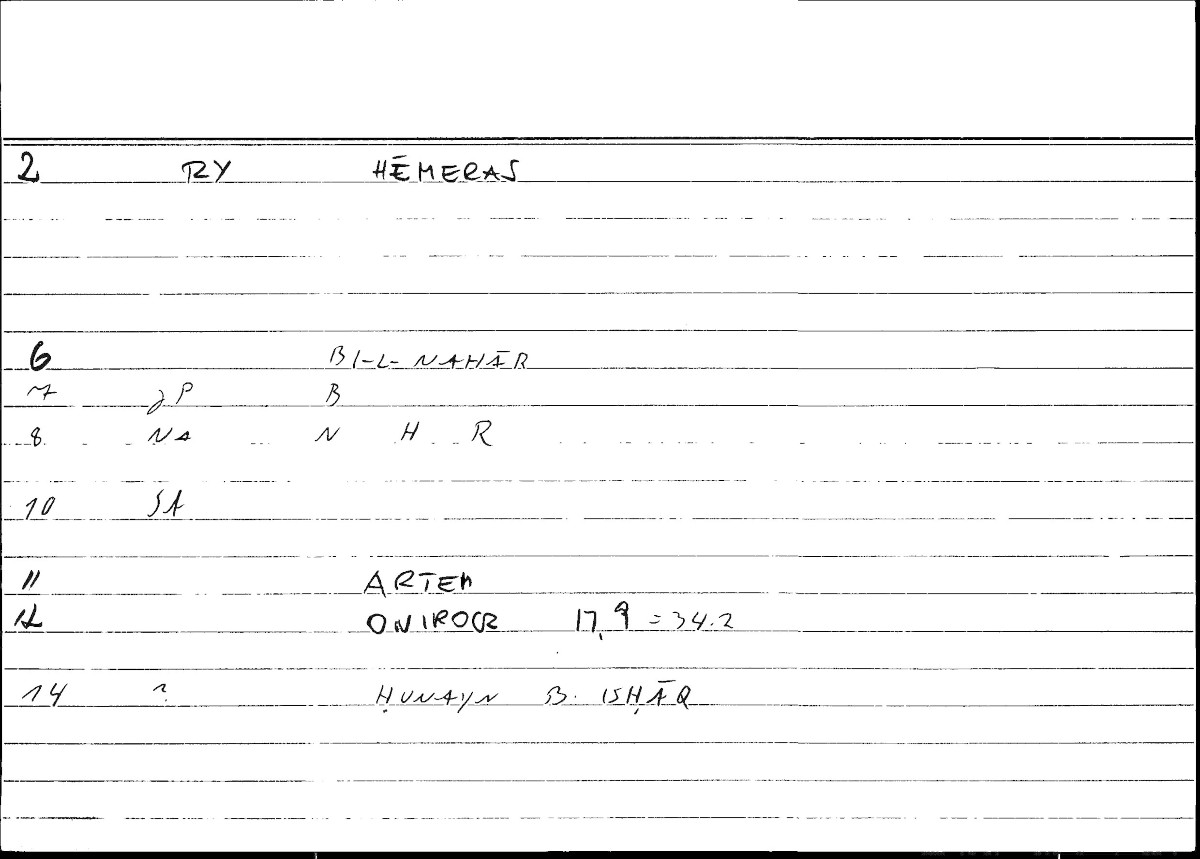 2 RY HĒMERAS
6 BI-L-NAHĀR
7 JP B
8 NA N H R
10 SA
11 ARTEM
12 ONIROCR 17,9 = 34.2
14 ? ḤUNAYN B. ISḤĀQ